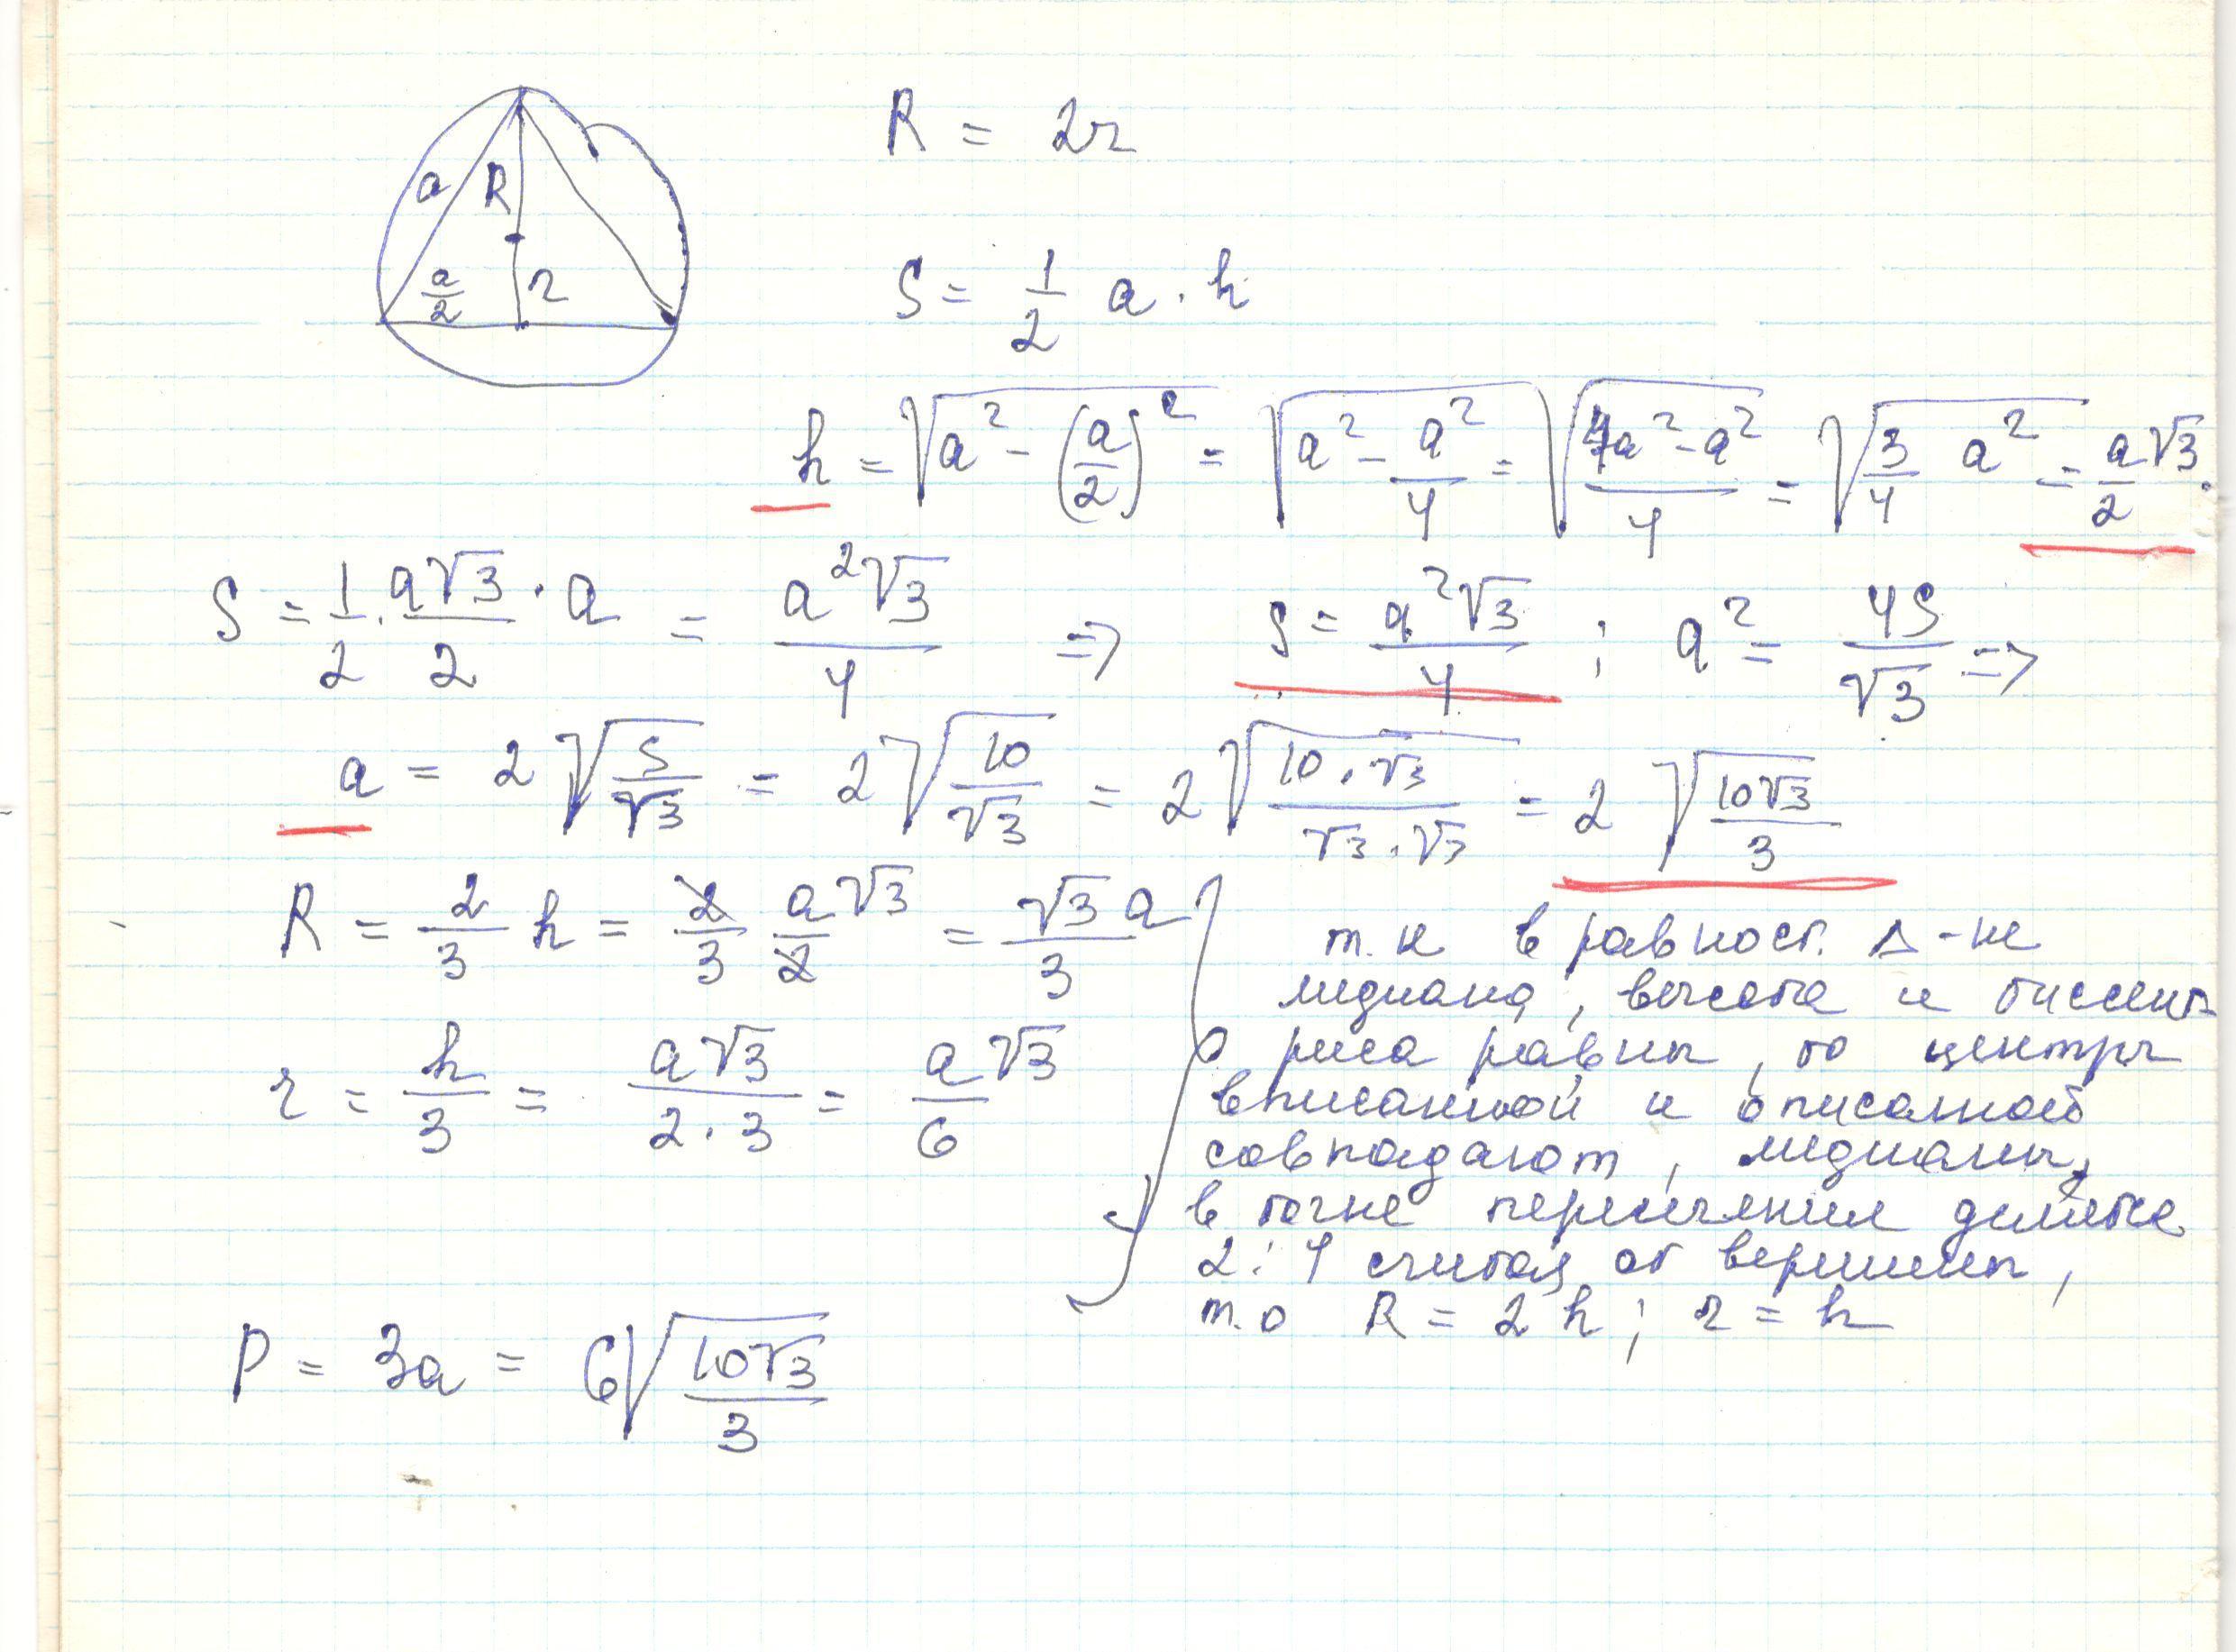 a R
a/2 r
R = 2r
S = 1/2 a · h
h = √(a² - (a/2)²) = √(a² - a²/4) = √((4a² - a²)/4) = √(3/4 a²) = a√3/2.
S = 1/2 · a√3/2 · a = a²√3/4 => S = a²√3/4 ; a² = 4S/√3 =>
a = 2√(S/√3) = 2√(10/√3) = 2√(10·√3/(√3·√3)) = 2√(10√3/3)
R = 2/3 h = 2/3 a√3/2 = √3a/3
r = h/3 = a√3/(2·3) = a√3/6
т.к в равност. Δ-ке
медиана, высота и биссект-
риса равны, то центры
вписанной и описанной
совпадают, медианы,
в точке пересечения делятся
2:1 считая от вершины,
т.о R = 2h ; r = h
P = 3a = 6√(10√3/3)